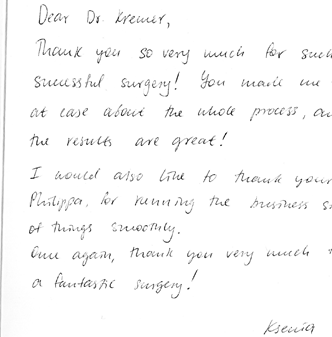 Dear Dr. Kremer,
Thank you so very much for such
successful surgery! You made me
at ease about the whole process, an
the results are great!
I would also like to thank your
Philippa, for running the business si
of things smoothly.
Once again, thank you very much
a fantastic surgery!
Ksenia